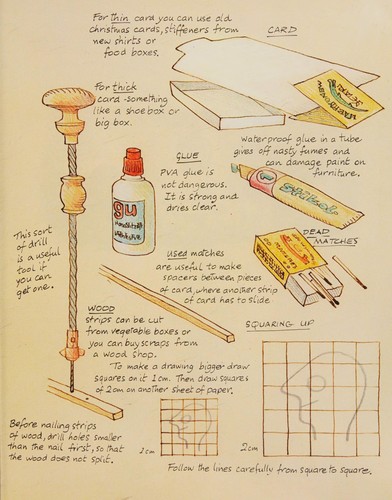 For thin card you can use old
christmas cards, stiffeners from
new shirts or
food boxes.
CARD
For thick
card - something
like a shoe box or
big box.
Waterproof glue in a tube
gives off nasty fumes and
can damage paint on
furniture.
GLUE
PVA glue is
not dangerous.
It is strong and
dries clear.
glu
This sort
of drill
is a useful
tool if
you can
get one.
DEAD
MATCHES
Used matches
are useful to make
spacers between pieces
of card, where another strip
of card has to slide
WOOD
strips can be cut
from vegetable boxes or
you can buy scraps from
a wood shop.
SQUARING UP
To make a drawing bigger draw
squares on it 1cm. Then draw squares
of 2cm on another sheet of paper.
Before nailing strips
of wood, drill holes smaller
than the nail first, so that
the wood does not split.
1cm
2cm
Follow the lines carefully from square to square.